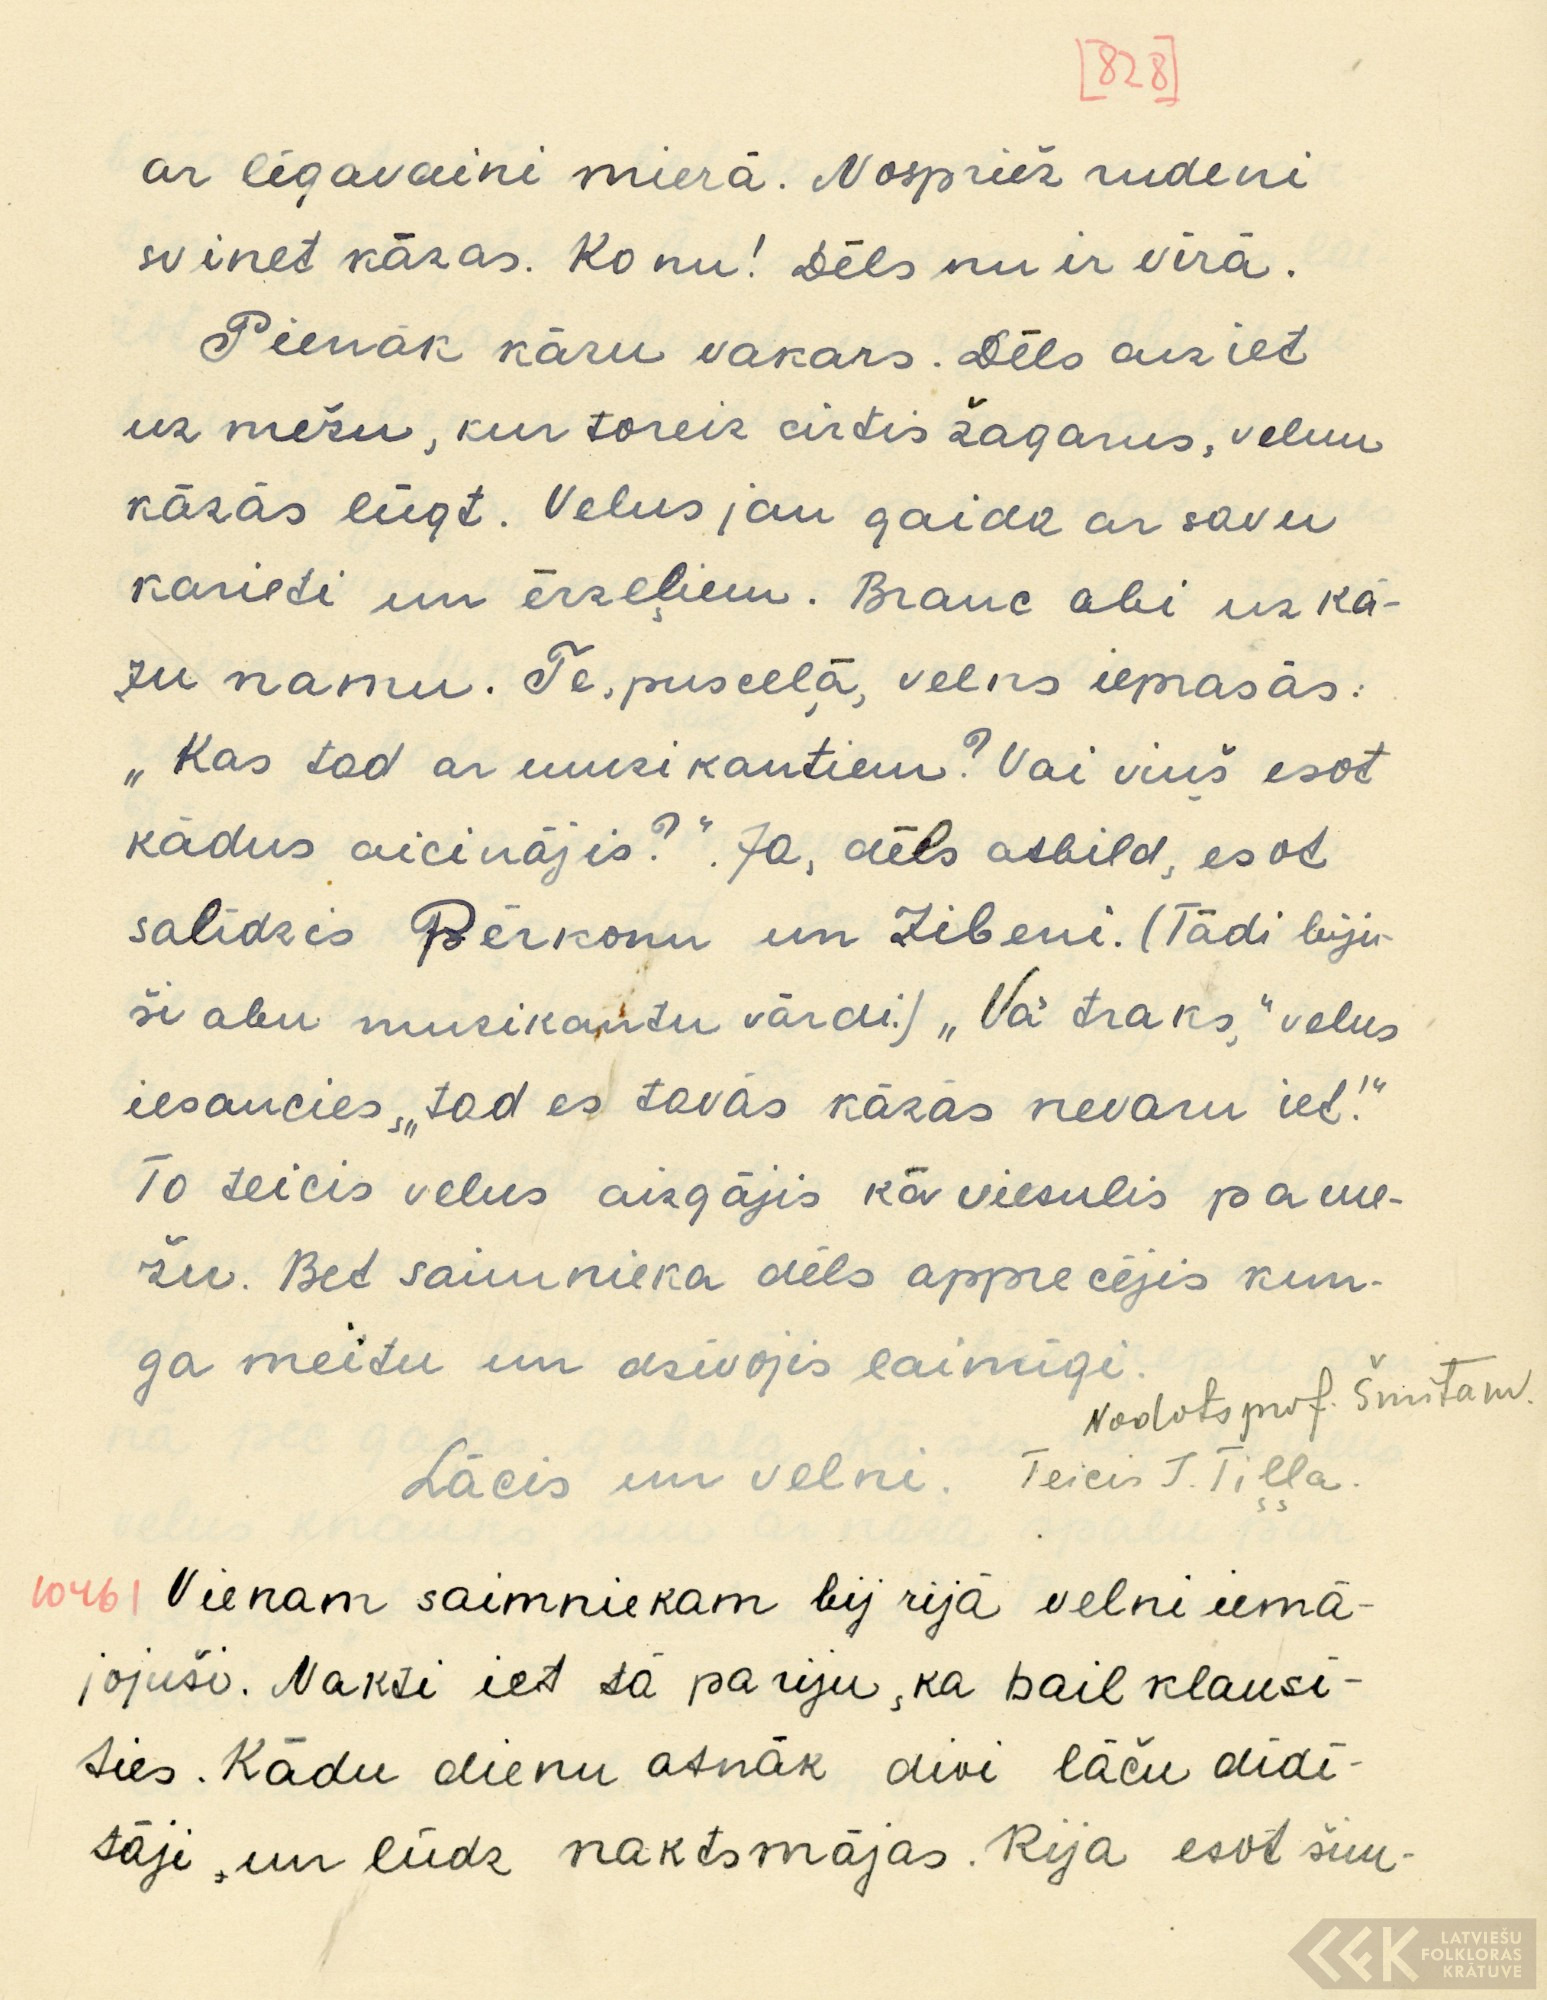 [828]
ar līgavaini mierā. Nospriež rudenī
svinēt kāzas. Ko nu! Dēls nu ir vīrā.
Pienāk kāzu vakars. Dēls aiziet
uz mežu, kur toreiz cirtis žagarus, velnu
kāzās lūgt. Velns jau gaida ar savu
karieti un ērzeļiem. Brauc abi uz kā-
zu namu. Te, pusceļā, velns ieprasās:
„Kas tad ar muzikantiem? Vai viņš esot
kādus aicinājis?“. Jā, dēls atbild, esot
salīdzis Pērkonu un Zibeni. (Tādi biju-
ši abu muzikantu vārdi.) „Vā traks,“ velns
iesaucies, „tad es tavās kāzās nevaru iet!“
To teicis velns aizgājis kā viesulis pa me-
žu. Bet saimnieka dēls apprecējis kun-
ga meitu un dzīvojis laimīgi.
Nodots prof. Šmitam.
Lācis un velni. Teicis J. Tiļļa.
10461 Vienam saimniekam bij rijā velni iemā-
jojuši. Naktī iet tā pa riju, ka bail klausī-
ties. Kādu dienu atnāk divi lāču dīdī-
tāji, un lūdz naktsmājas. Rija esot šim-
LATVIEŠU
FOLKLORAS
KRĀTUVE